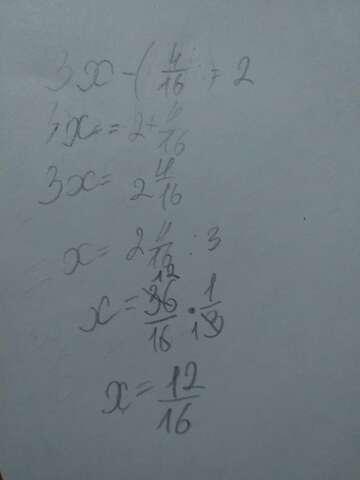 3x - ( 4/16 = 2
3x = 2 + 4/16
3x = 2 4/16
x = 2 4/16 : 3
x = 36/16 · 1/3 12 1
x = 12/16